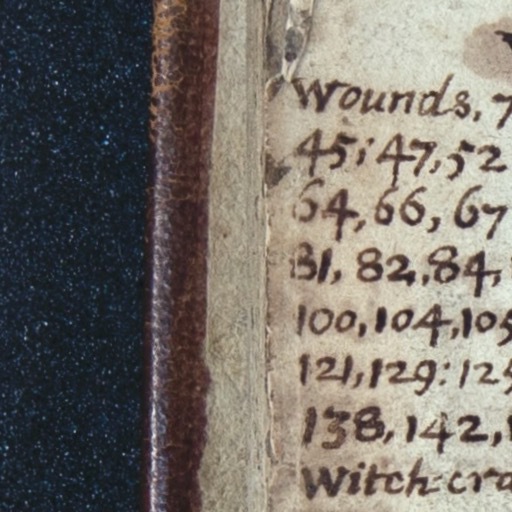 Wounds, 7
45; 47, 52
64, 66, 67
81, 82, 84,
100, 104, 105
121, 129: 125
138, 142, 1
Witch-cra